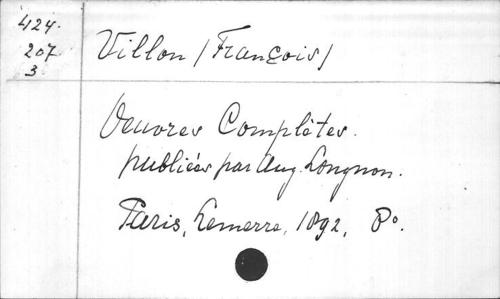 424.
207
3
Villon (François)
Oeuvres Complètes.
publiées par Aug. Longnon.
Paris, Lemerre, 1892, 8º.